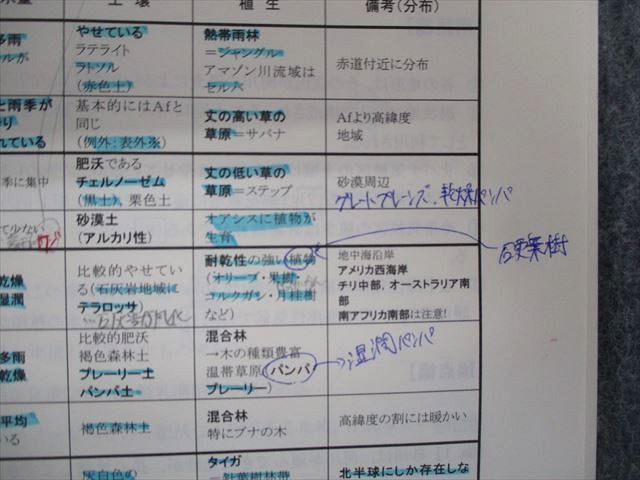 土壌
植生
備考(分布)
多雨
やせている
ラテライト
ラトソル
(赤色土)
熱帯雨林
=ジャングル
アマゾン川流域は
セルバ
赤道付近に分布
と雨季が
れている
基本的にはAfと
同じ
(例外:表外※)
丈の高い草の
草原=サバナ
Afより高緯度
地域
季に集中
肥沃である
チェルノーゼム
(黒土),栗色土
丈の低い草の
草原=ステップ
砂漠周辺
グレートプレーンズ、乾燥パンパ
て少ない
砂漠土
(アルカリ性)
オアシスに植物が
生育
乾燥
湿潤
比較的やせてい
る(石灰岩地域に
テラロッサ)
耐乾性の強い植物
(オリーブ・果樹・
コルクガシ・月桂樹
など)
硬葉樹
地中海沿岸
アメリカ西海岸
チリ中部,オーストラリア南
部
南アフリカ南部は注意!
多雨
乾燥
比較的肥沃
褐色森林土
プレーリー土
パンパ土
混合林
→木の種類豊富
温帯草原(パンパ・
プレーリー)
湿潤パンパ
平均
いる
褐色森林土
混合林
特にブナの木
高緯度の割には暖かい
灰白色の
タイガ
=針葉樹林帯
北半球にしか存在しな